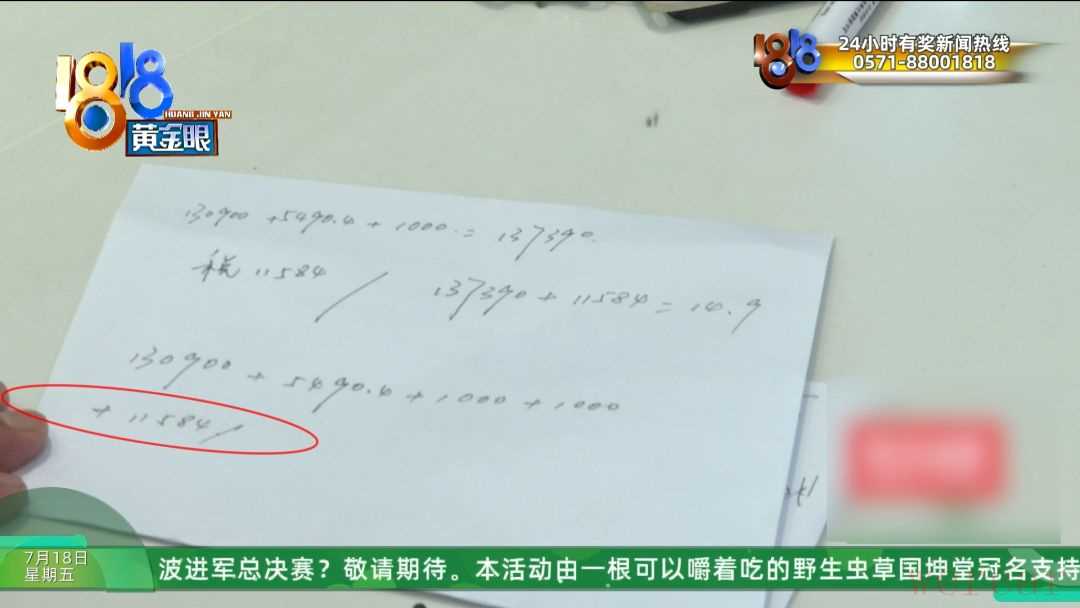 1818
HUANG JIN YAN
黄金眼
1818
24小时有奖新闻热线
0571-88001818
130900+5490.4+1000.=137390.
税11584/
137390+11584=14.9
130900+5490.4+1000+1000
+11584/
7月18日
星期五
波进军总决赛？敬请期待。本活动由一根可以嚼着吃的野生虫草国坤堂冠名支持